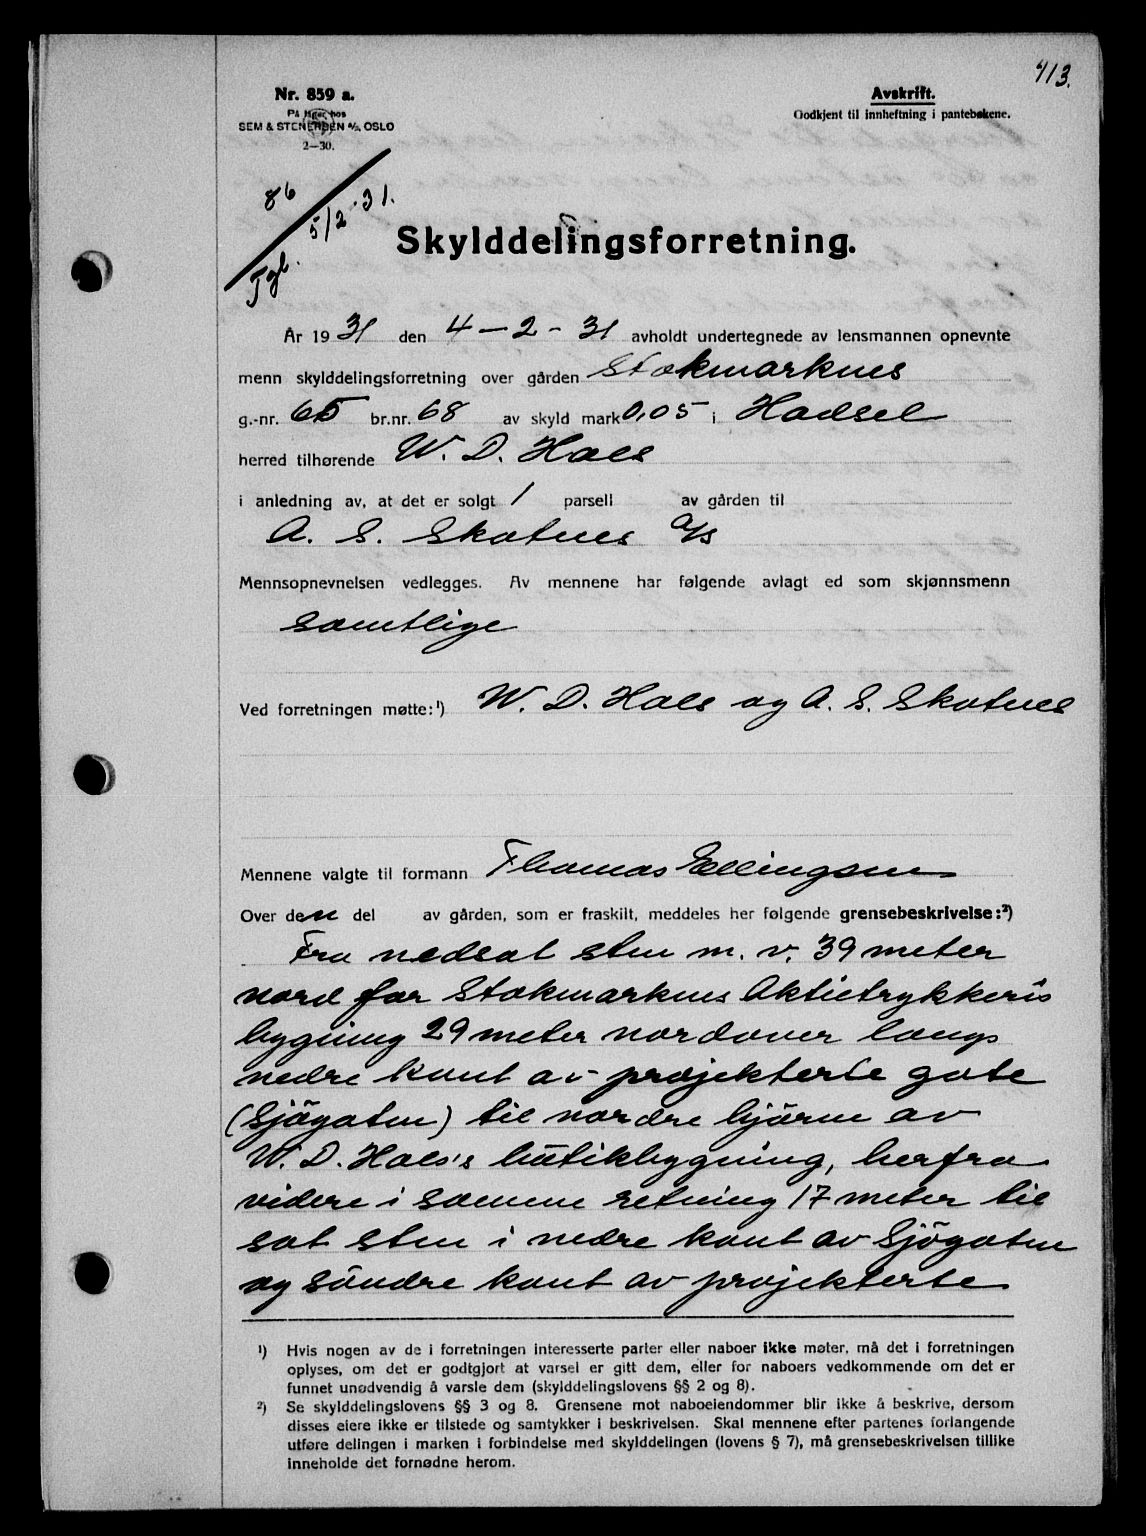 713.
Nr. 859 a.
På lager hos
SEM & STENERSEN A/S, OSLO
2—30.
Avskrift.
Godkjent til innheftning i pantebøkene.
86
Tgb. 5/2-31.
Skylddelingsforretning.
År 1931 den 4-2-31 avholdt undertegnede av lensmannen opnevnte
menn skylddelingsforretning over gården Stokmarknes
g.-nr. 65 br.nr. 68 av skyld mark 0,05 i Hadsel
herred tilhørende W. D. Hals
i anledning av, at det er solgt 1 parsell av gården til
A. S. Skotnes A/S
Mennsopnevnelsen vedlegges. Av mennene har følgende avlagt ed som skjønnsmenn
samtlige
Ved forretningen møtte:¹) W. D. Hals og A. S. Skotnes
Mennene valgte til formann Thomas Ellingsen
Over den del av gården, som er fraskilt, meddeles her følgende grensebeskrivelse:²)
Fra nedsat sten m. v. 39 meter
nord for Stokmarknes Aktietrykkeris
bygning 29 meter nordover langs
nedre kant av projekterte gate
(Sjøgaten) til nordre hjörne av
W. D. Hals's butikbygning, herfra
videre i samme retning 17 meter til
sat sten i nedre kant av Sjögaten
og söndre kant av projekterte
¹) Hvis nogen av de i forretningen interesserte parter eller naboer ikke møter, må det i forretningen
oplyses, om det er godtgjort at varsel er gitt dem, eller for naboers vedkommende om det er
funnet unødvendig å varsle dem (skylddelingslovens §§ 2 og 8).
²) Se skylddelingslovens §§ 3 og 8. Grensene mot naboeiendommer blir ikke å beskrive, dersom
disses eiere ikke er tilstede og samtykker i beskrivelsen. Skal mennene efter partenes forlangende
utføre delingen i marken i forbindelse med skylddelingen (lovens § 7), må grensebeskrivelsen tillike
inneholde det fornødne herom.